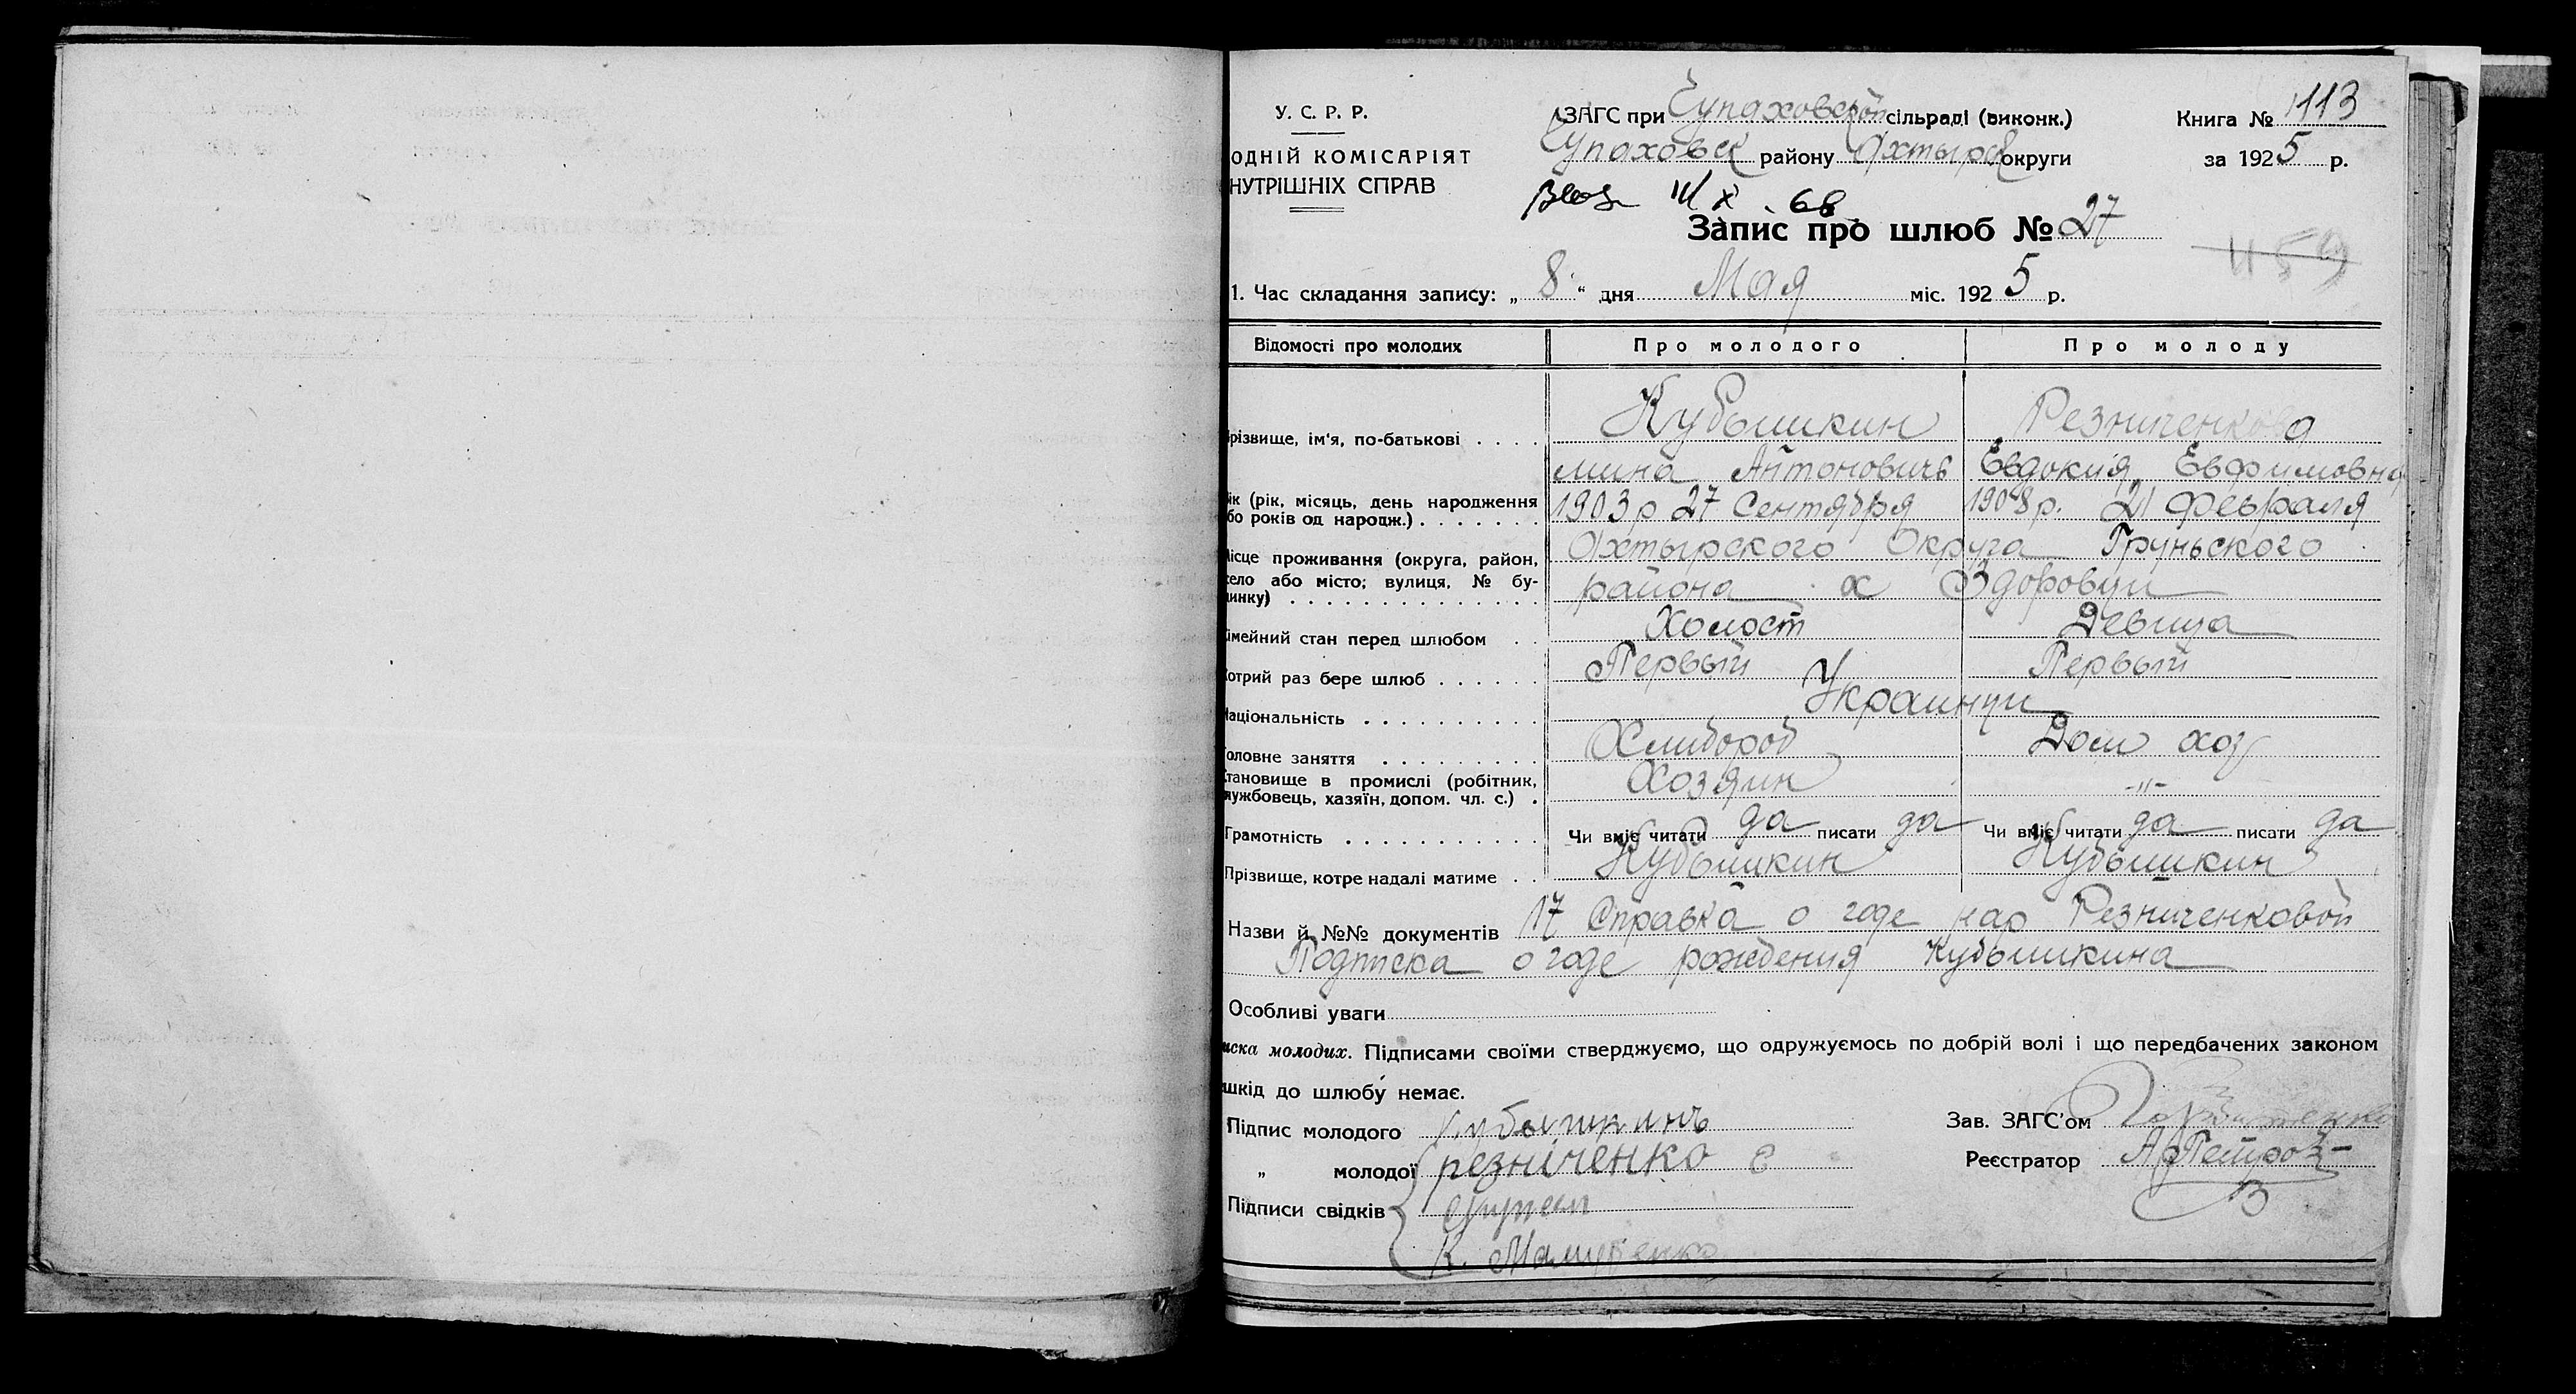 У. С. Р. Р.
ОДНІЙ КОМІСАРІЯТ
НУТРІШНІХ СПРАВ
ЗАГС при Чупаховской сільраді (виконк.)
Чупаховск району Ахтырск округи
Книга № 1113
за 1925 р.
Запис про шлюб № 27
1159
1. Час складання запису: „ 8 “ дня Мая міс. 1925 р.
Відомості про молодих Про молодого Про молоду
різвище, ім'я, по-батькові . . . . Кубышкин Резниченкова
мина Антоновичъ Евдокия Евфимовна
ік (рік, місяць, день народження
бо років од народж.) . . . . . . . 1903 р 27 Сентября 1908 р. 21 Февраля
ісце проживання (округа, район, Ахтырского Округа Груньского
ело або місто; вулиця, № бу-
инку) . . . . . . . . . . . . . . района х Здоровци
імейний стан перед шлюбом . . Холост Девица
отрий раз бере шлюб . . . . . . Первый Первый
аціональність . . . . . . . . . . Украинци
оловне заняття . . . . . . . . . Хлибороб Дом хоз
тановище в промислі (робітник,
ужбовець, хазяїн, допом. чл. с.) . Хозяин -„-
Грамотність . . . . . . . . . . . Чи вміє читати да писати да Чи вміє читати да писати да
Прізвище, котре надалі матиме . . Кубышкин Кубышкин
Назви й №№ документів 17 Справка о годе нар Резниченковой
Подписка о годе рождения Кубышкина
Особливі уваги
иска молодих. Підписами своїми стверджуємо, що одружуємось по добрій волі і що передбачених законом
шкід до шлюбу немає.
Підпис молодого Кубышкинъ
„ молодої резніченко Є
Підписи свідків
К.
Зав. ЗАГС'ом
Реєстратор Петров